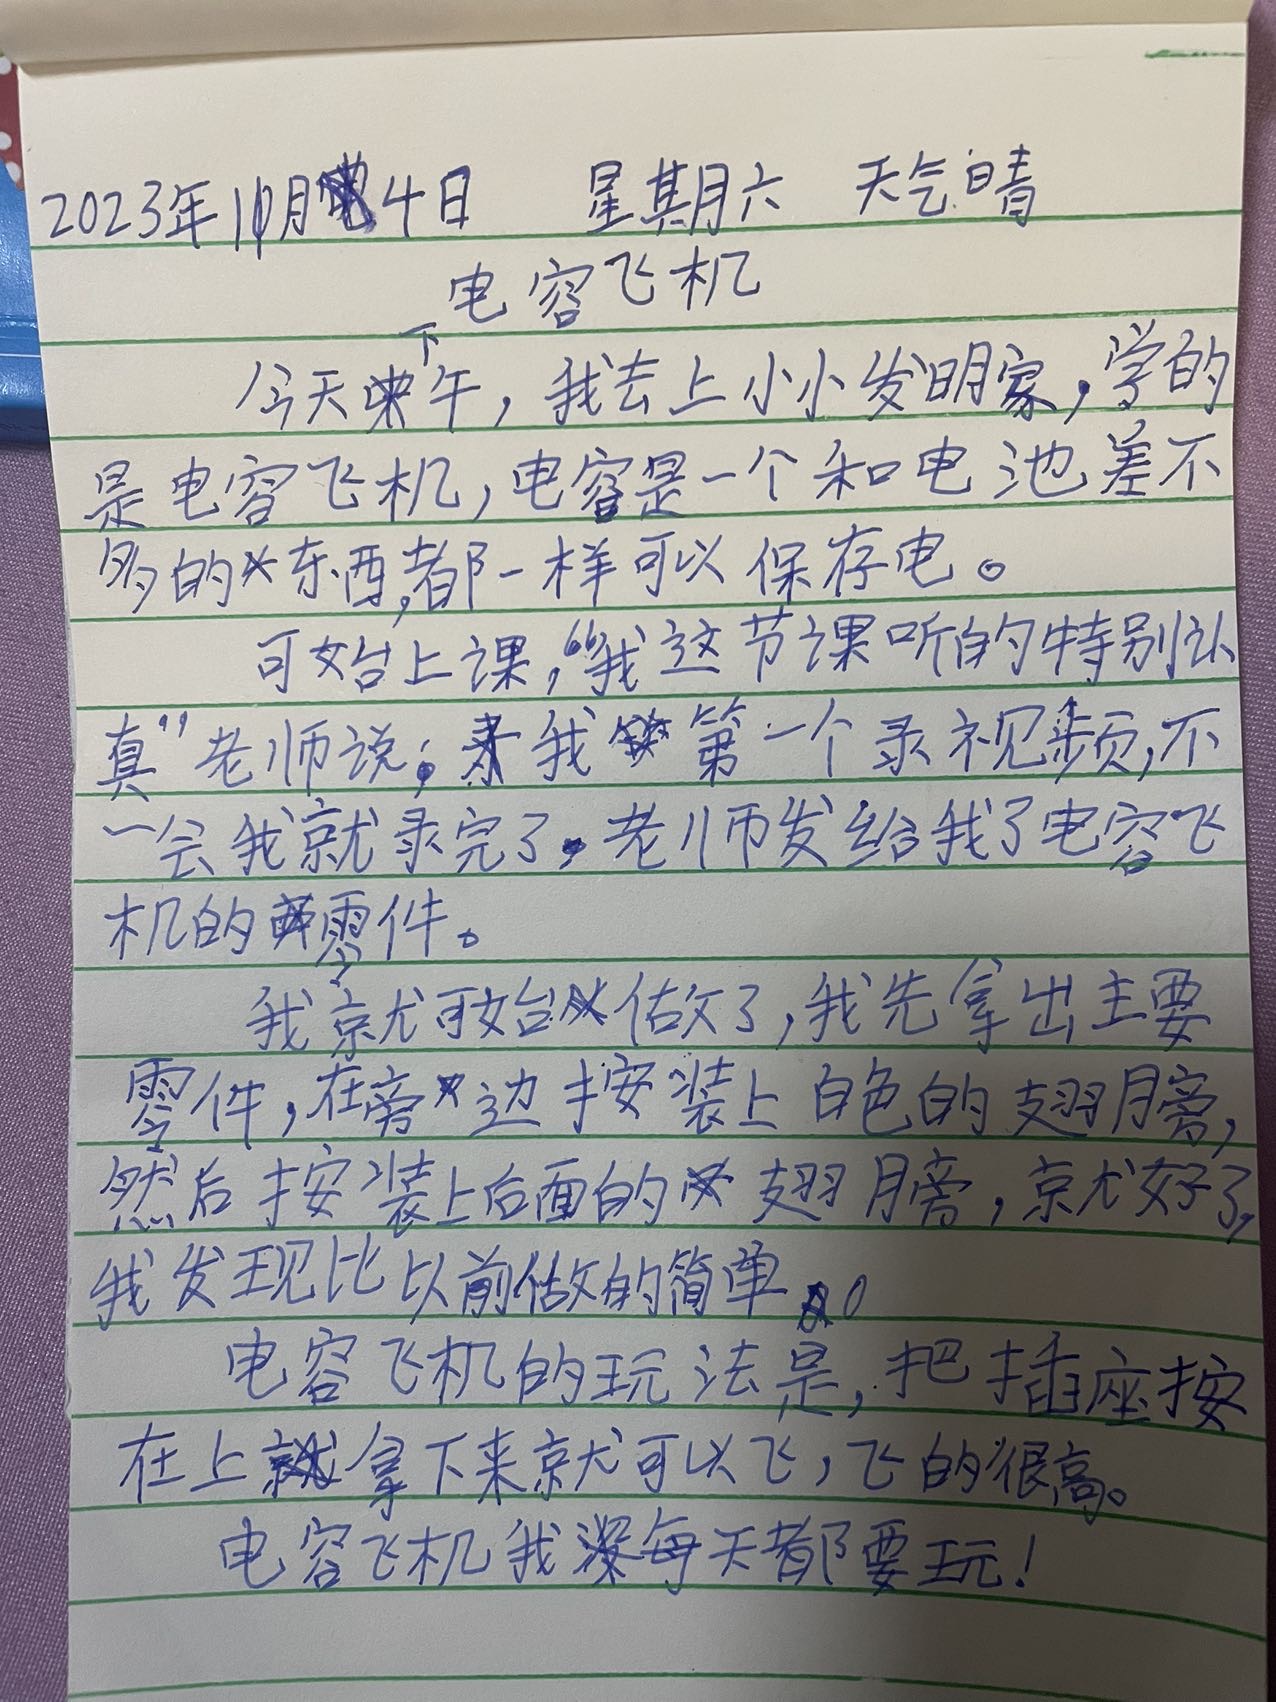 2023年11月4日 星期六 天气晴
电容飞机
今天下午，我去上小小发明家，学的
是电容飞机，电容是一个和电池差不
多的东西，都一样可以保存电。
可始上课，“我这节课听的特别认
真”老师说；我第一个录视频，不
一会我就录完了。老师发给我了电容飞
机的零件。
我就可始做了，我先拿出主要
零件，在旁边按装上白色的翅膀，
然后按装上后面的翅膀，就好了，
我发现比以前做的简单。
电容飞机的玩法是，把插座按
在上拿下来就可以飞，飞的很高。
电容飞机我每天都要玩！